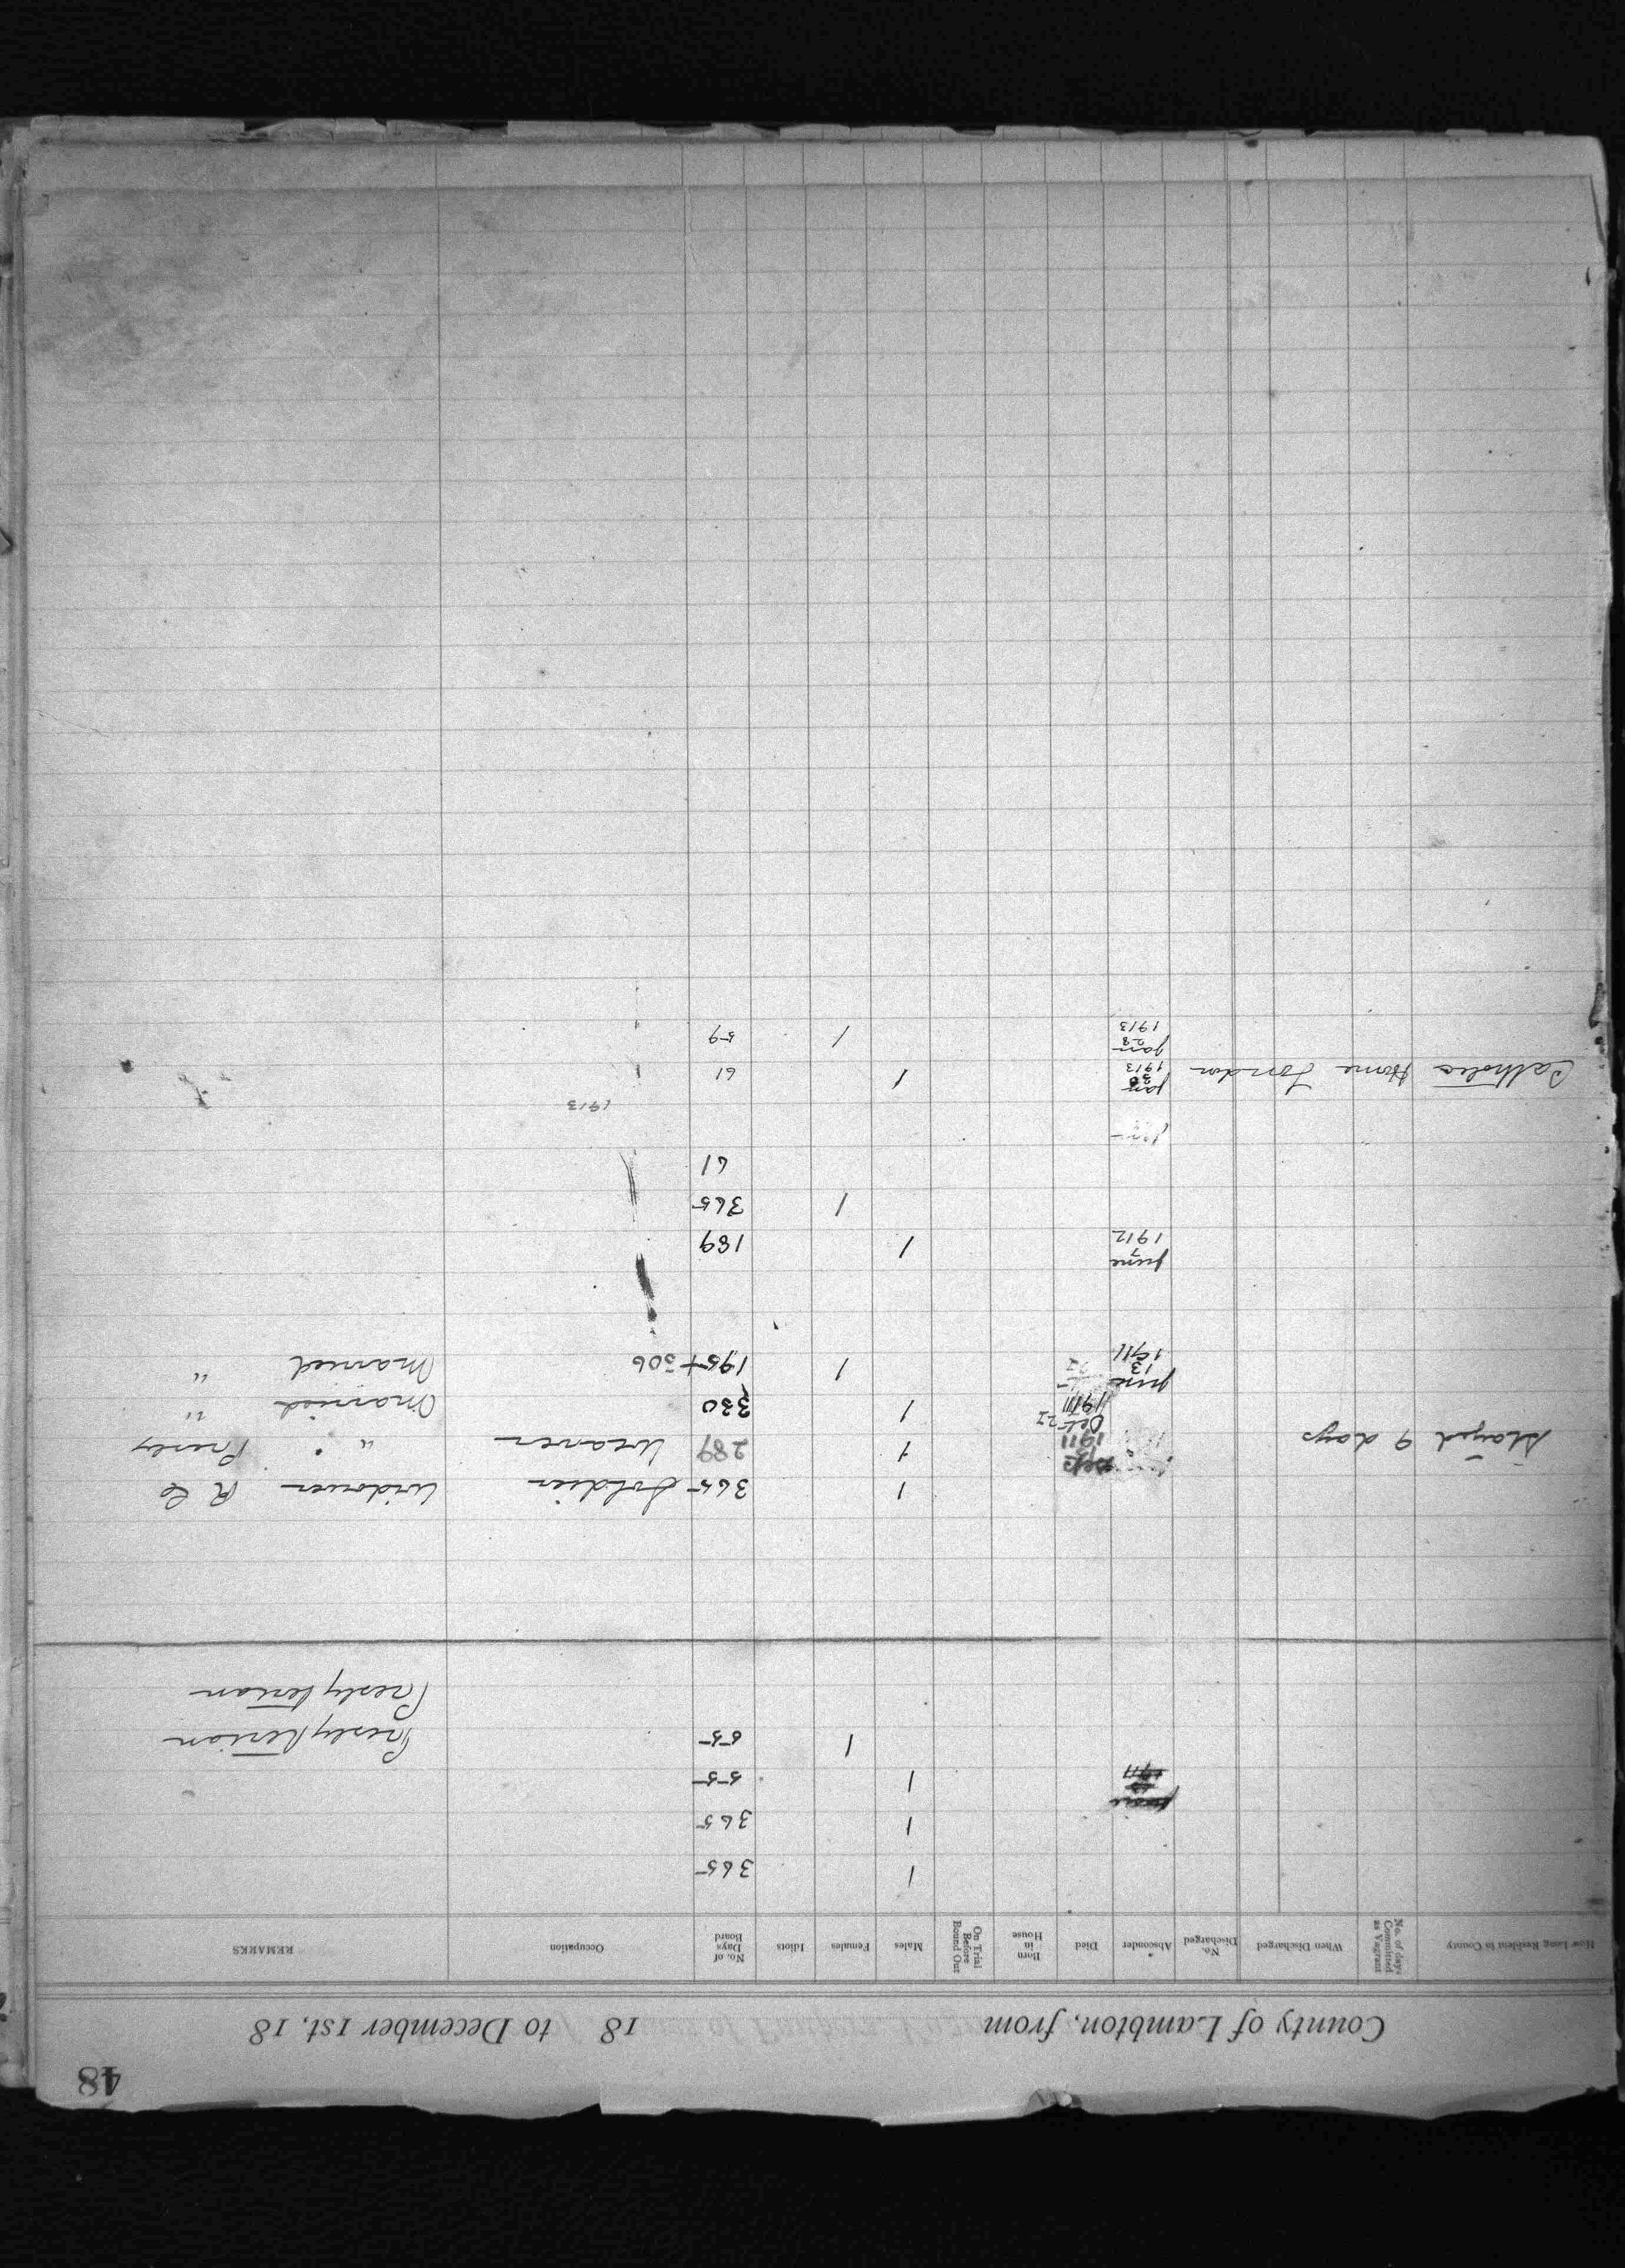 48
County of Lambton, from 18 to December 1st, 18
How Long Resident in County
No. of days Committed as Vagrant
When Discharged
No. Discharged
Absconder
Died
Born in House
On Trial Before Bound Out
Males
Females
Idiots
No. of Days Board
Occupation
REMARKS
1 365
1 365
June 13 1911 1 55
1 55 Presbyterian
Presbyterian
1 365 Soldier Widower R C
Stayed 9 days Sep 1911 1 289 Weaver " Presby
Oct 22 1911 1 330 Married "
June 13 1911 1 195 + 306 Married "
June 7 1912 1 189
1 365
61
1913
Catholic Home London Jan 30 1913 1 61
Jan 28 1913 1 59